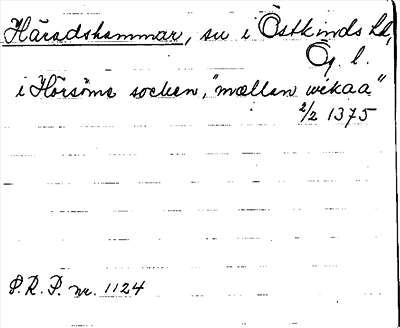 Häradshammar, sn i Östkinds hd,
Ög. l.
i Hörsöme socken, "mællan wikaa"
2/2 1375
S.R.P. nr. 1124